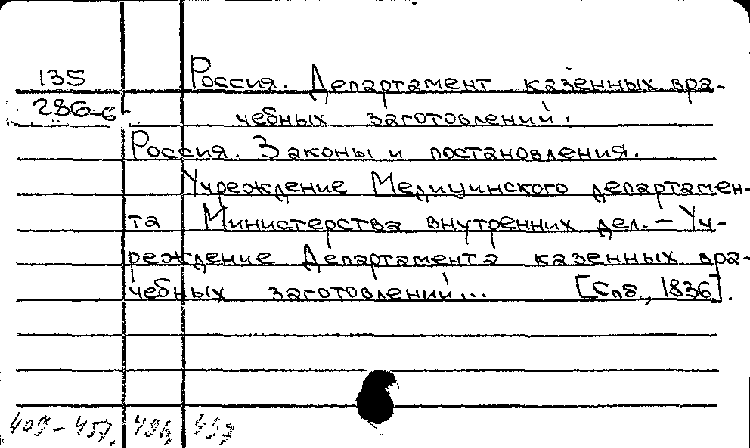 135 Россия. Департамент казенных вра-
286-6 чебных заготовлений.
Россия. Законы и постановления.
Учреждение Медицинского департамен-
та Министерства внутренних дел. – Уч-
реждение Департамента казенных вра-
чебных заготовлений... [Спб, 1836].
409-457,